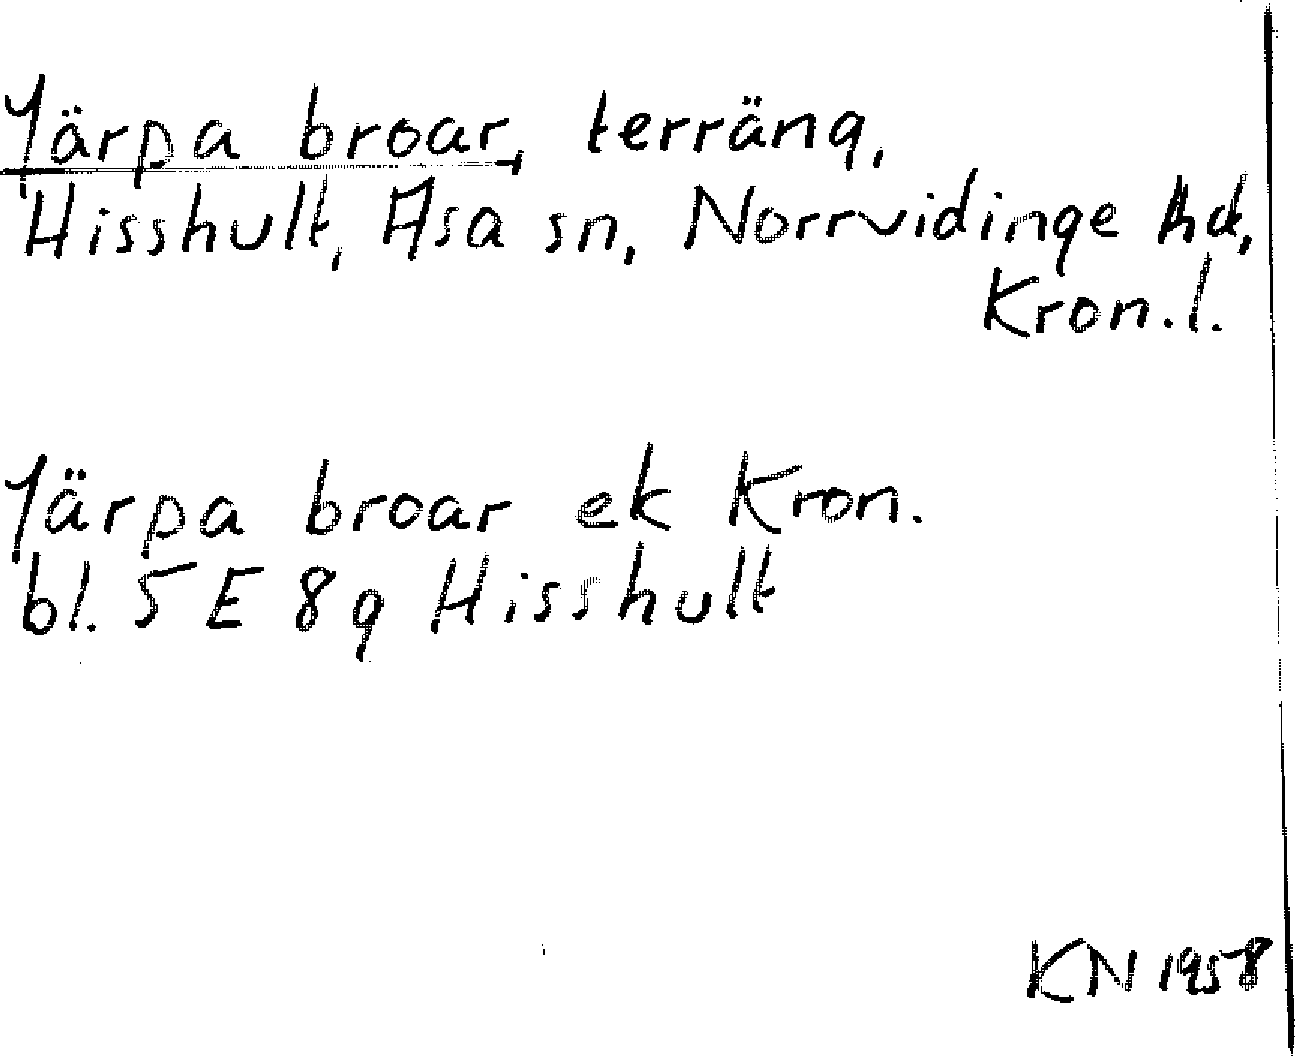 Järpa broar, terräng,
Hisshult, Asa sn, Norrvidinge hd,
Kron.l.
Järpa broar ek Kron.
bl. 5 E 8g Hisshult
KN 1958